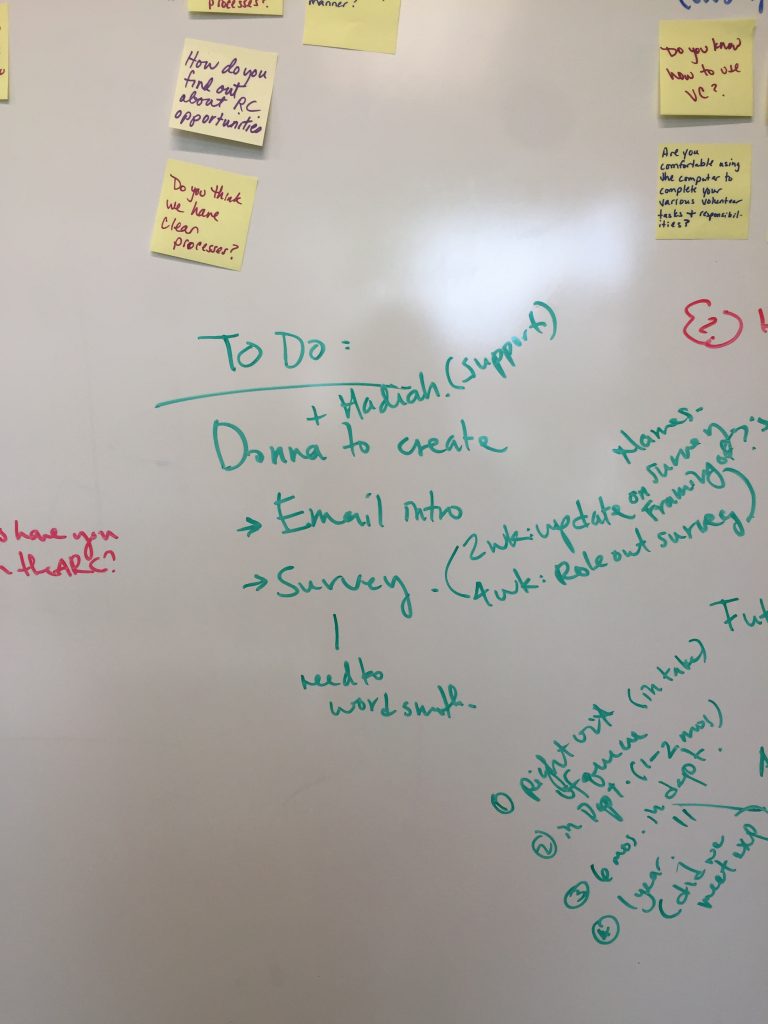 processes?
manner?
How do you
find out
about RC
opportunities
Do you think
we have
clean
processes?
Do you know
how to use
VC?
Are you
comfortable using
the computer to
complete your
various volunteer
tasks + responsibil-
ities?
To Do:
+ Hadiah. (support)
Donna to create
→ Email intro
→ Survey.
(2wk: update on survey
Names-
Framing of ?'s
4wk: Role out survey)
need to
wordsmith.
have you
the ARC?
2.
Fut
① Right out
of queue (intake)
② in Dept. (1-2 mos)
③ 6 mos. in dept.
④ 1 year. "
(did we
meet exp